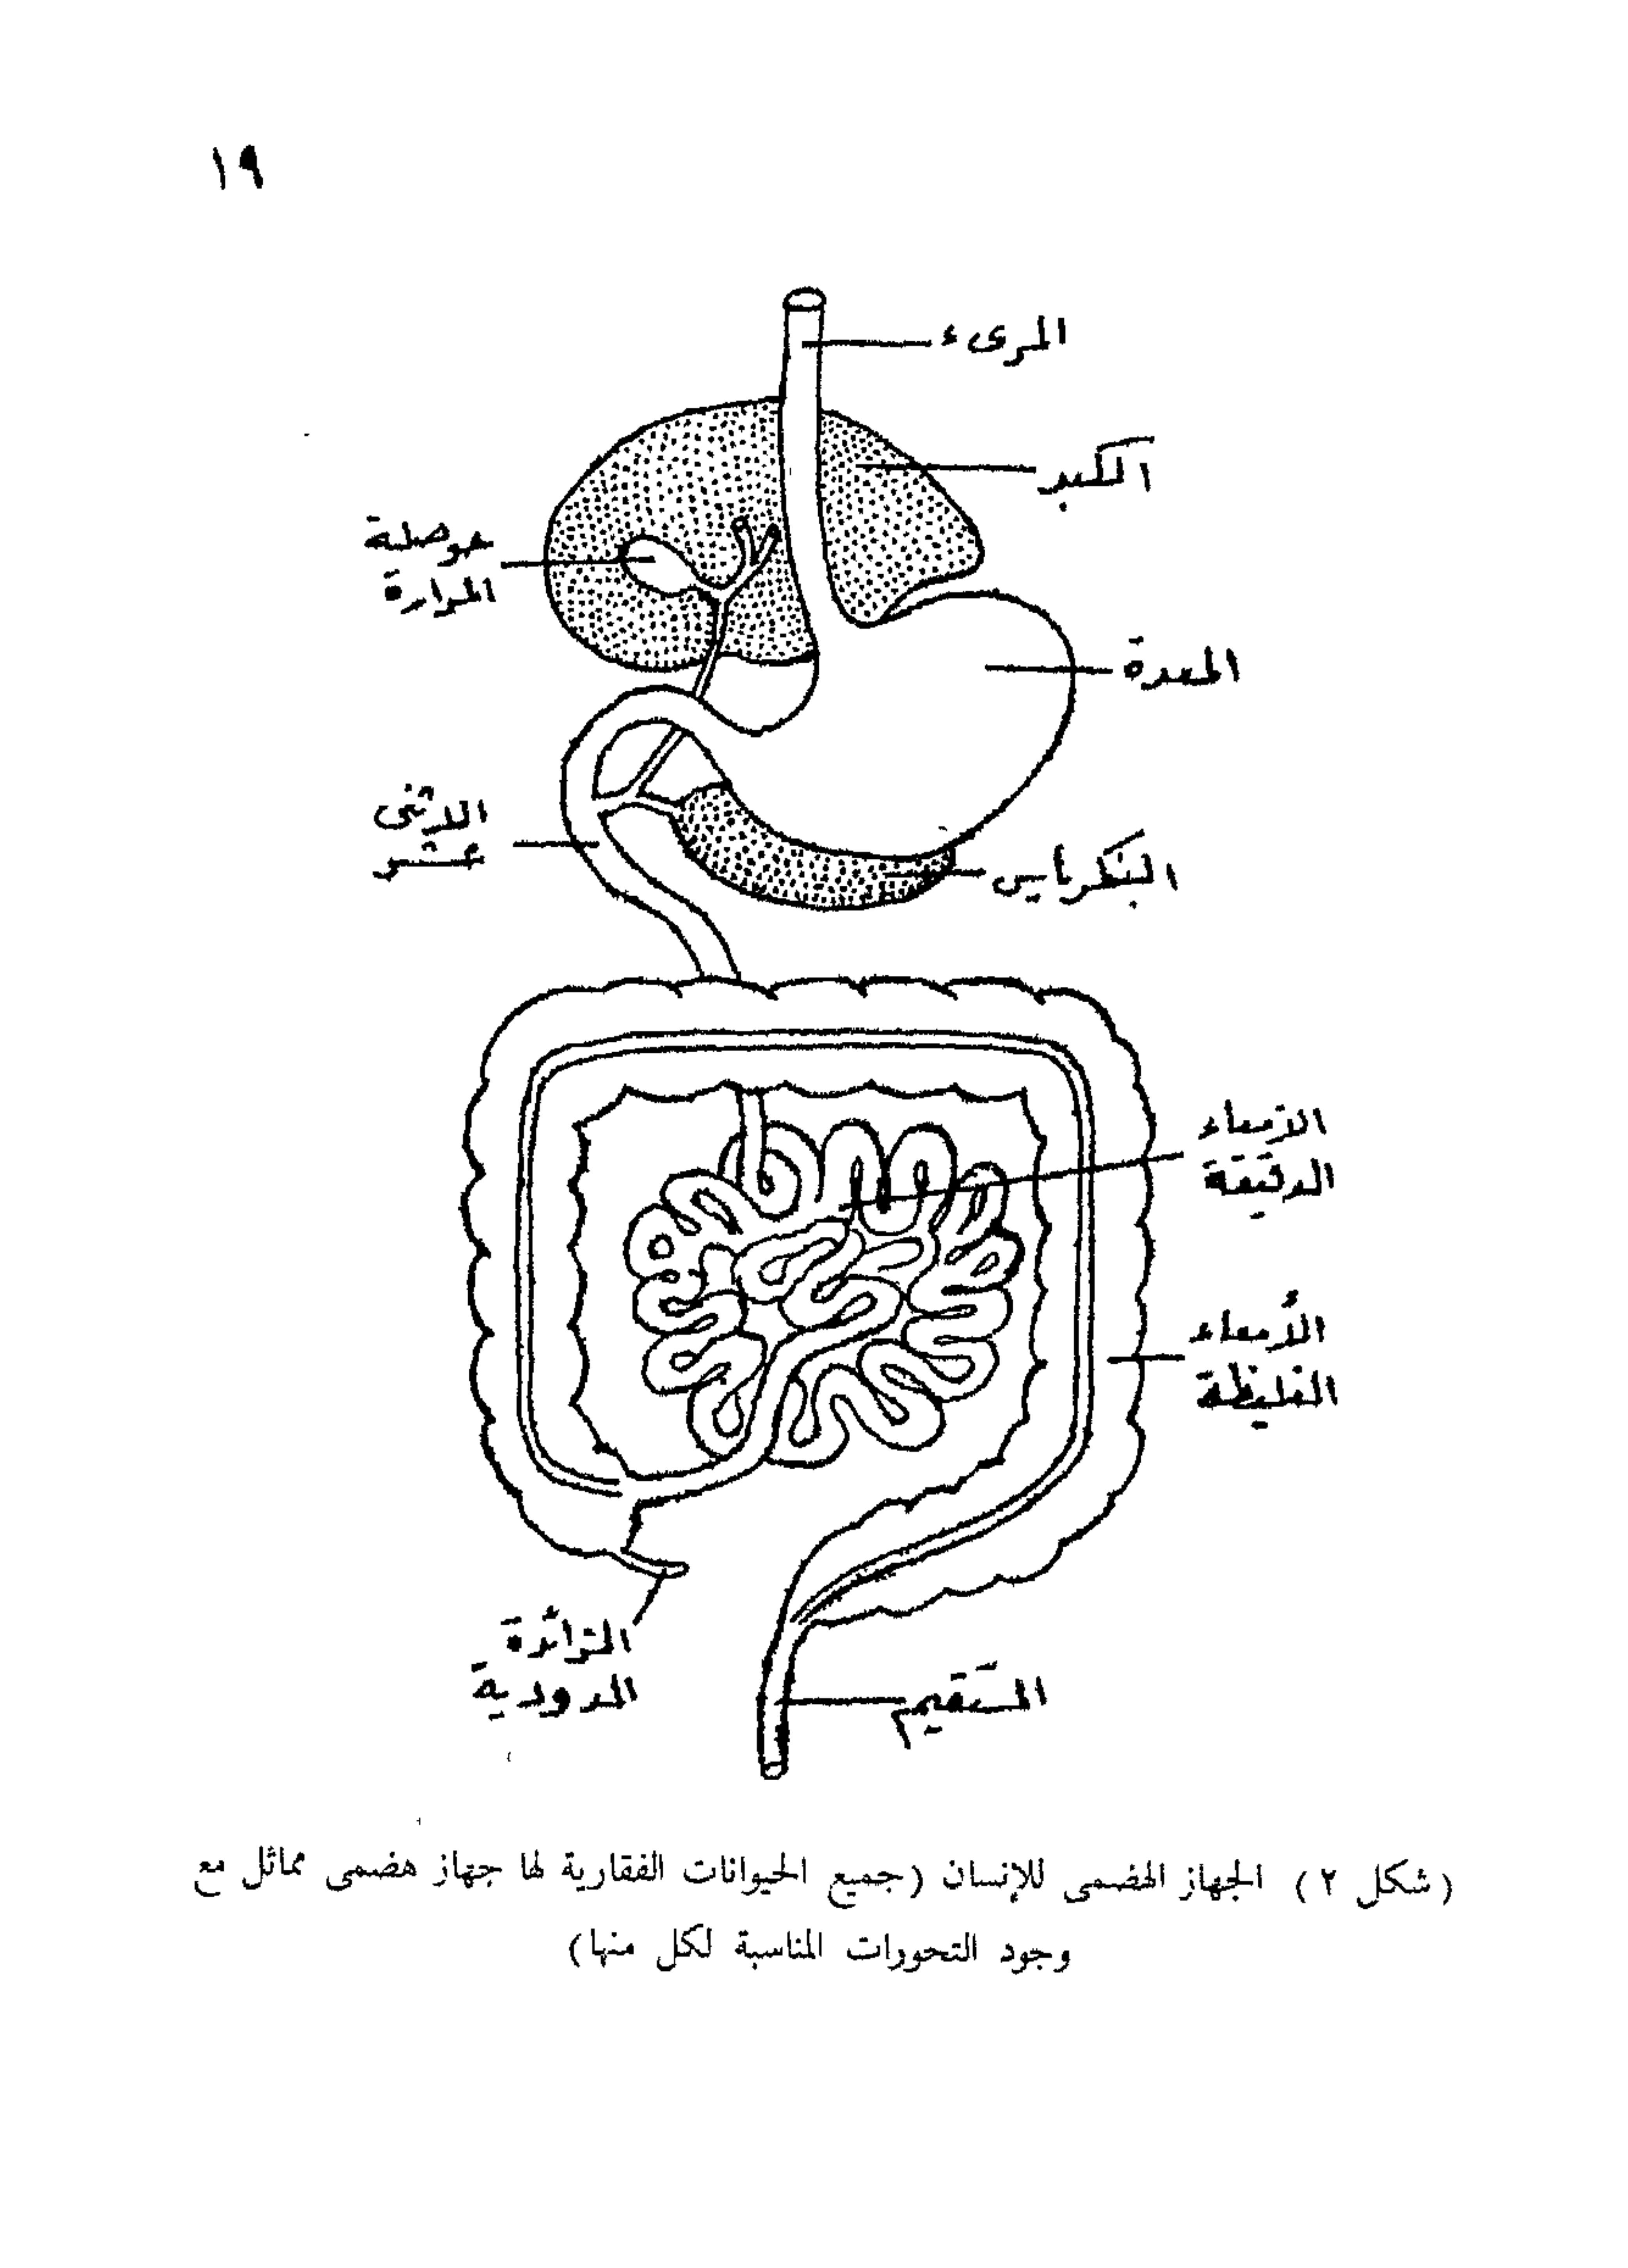 ١٩
المرىء
الكبد
حوصلة
المرارة
المعدة
الاثنى
عشر
البنكرياس
الامعاء
الدقيقة
الأمعاء
الغليظة
الزائدة
الدودية
المستقيم
(شكل ٢) الجهاز الهضمى للإنسان (جميع الحيوانات الفقارية لها جهاز هضمى مماثل مع
وجود التحورات المناسبة لكل منها)